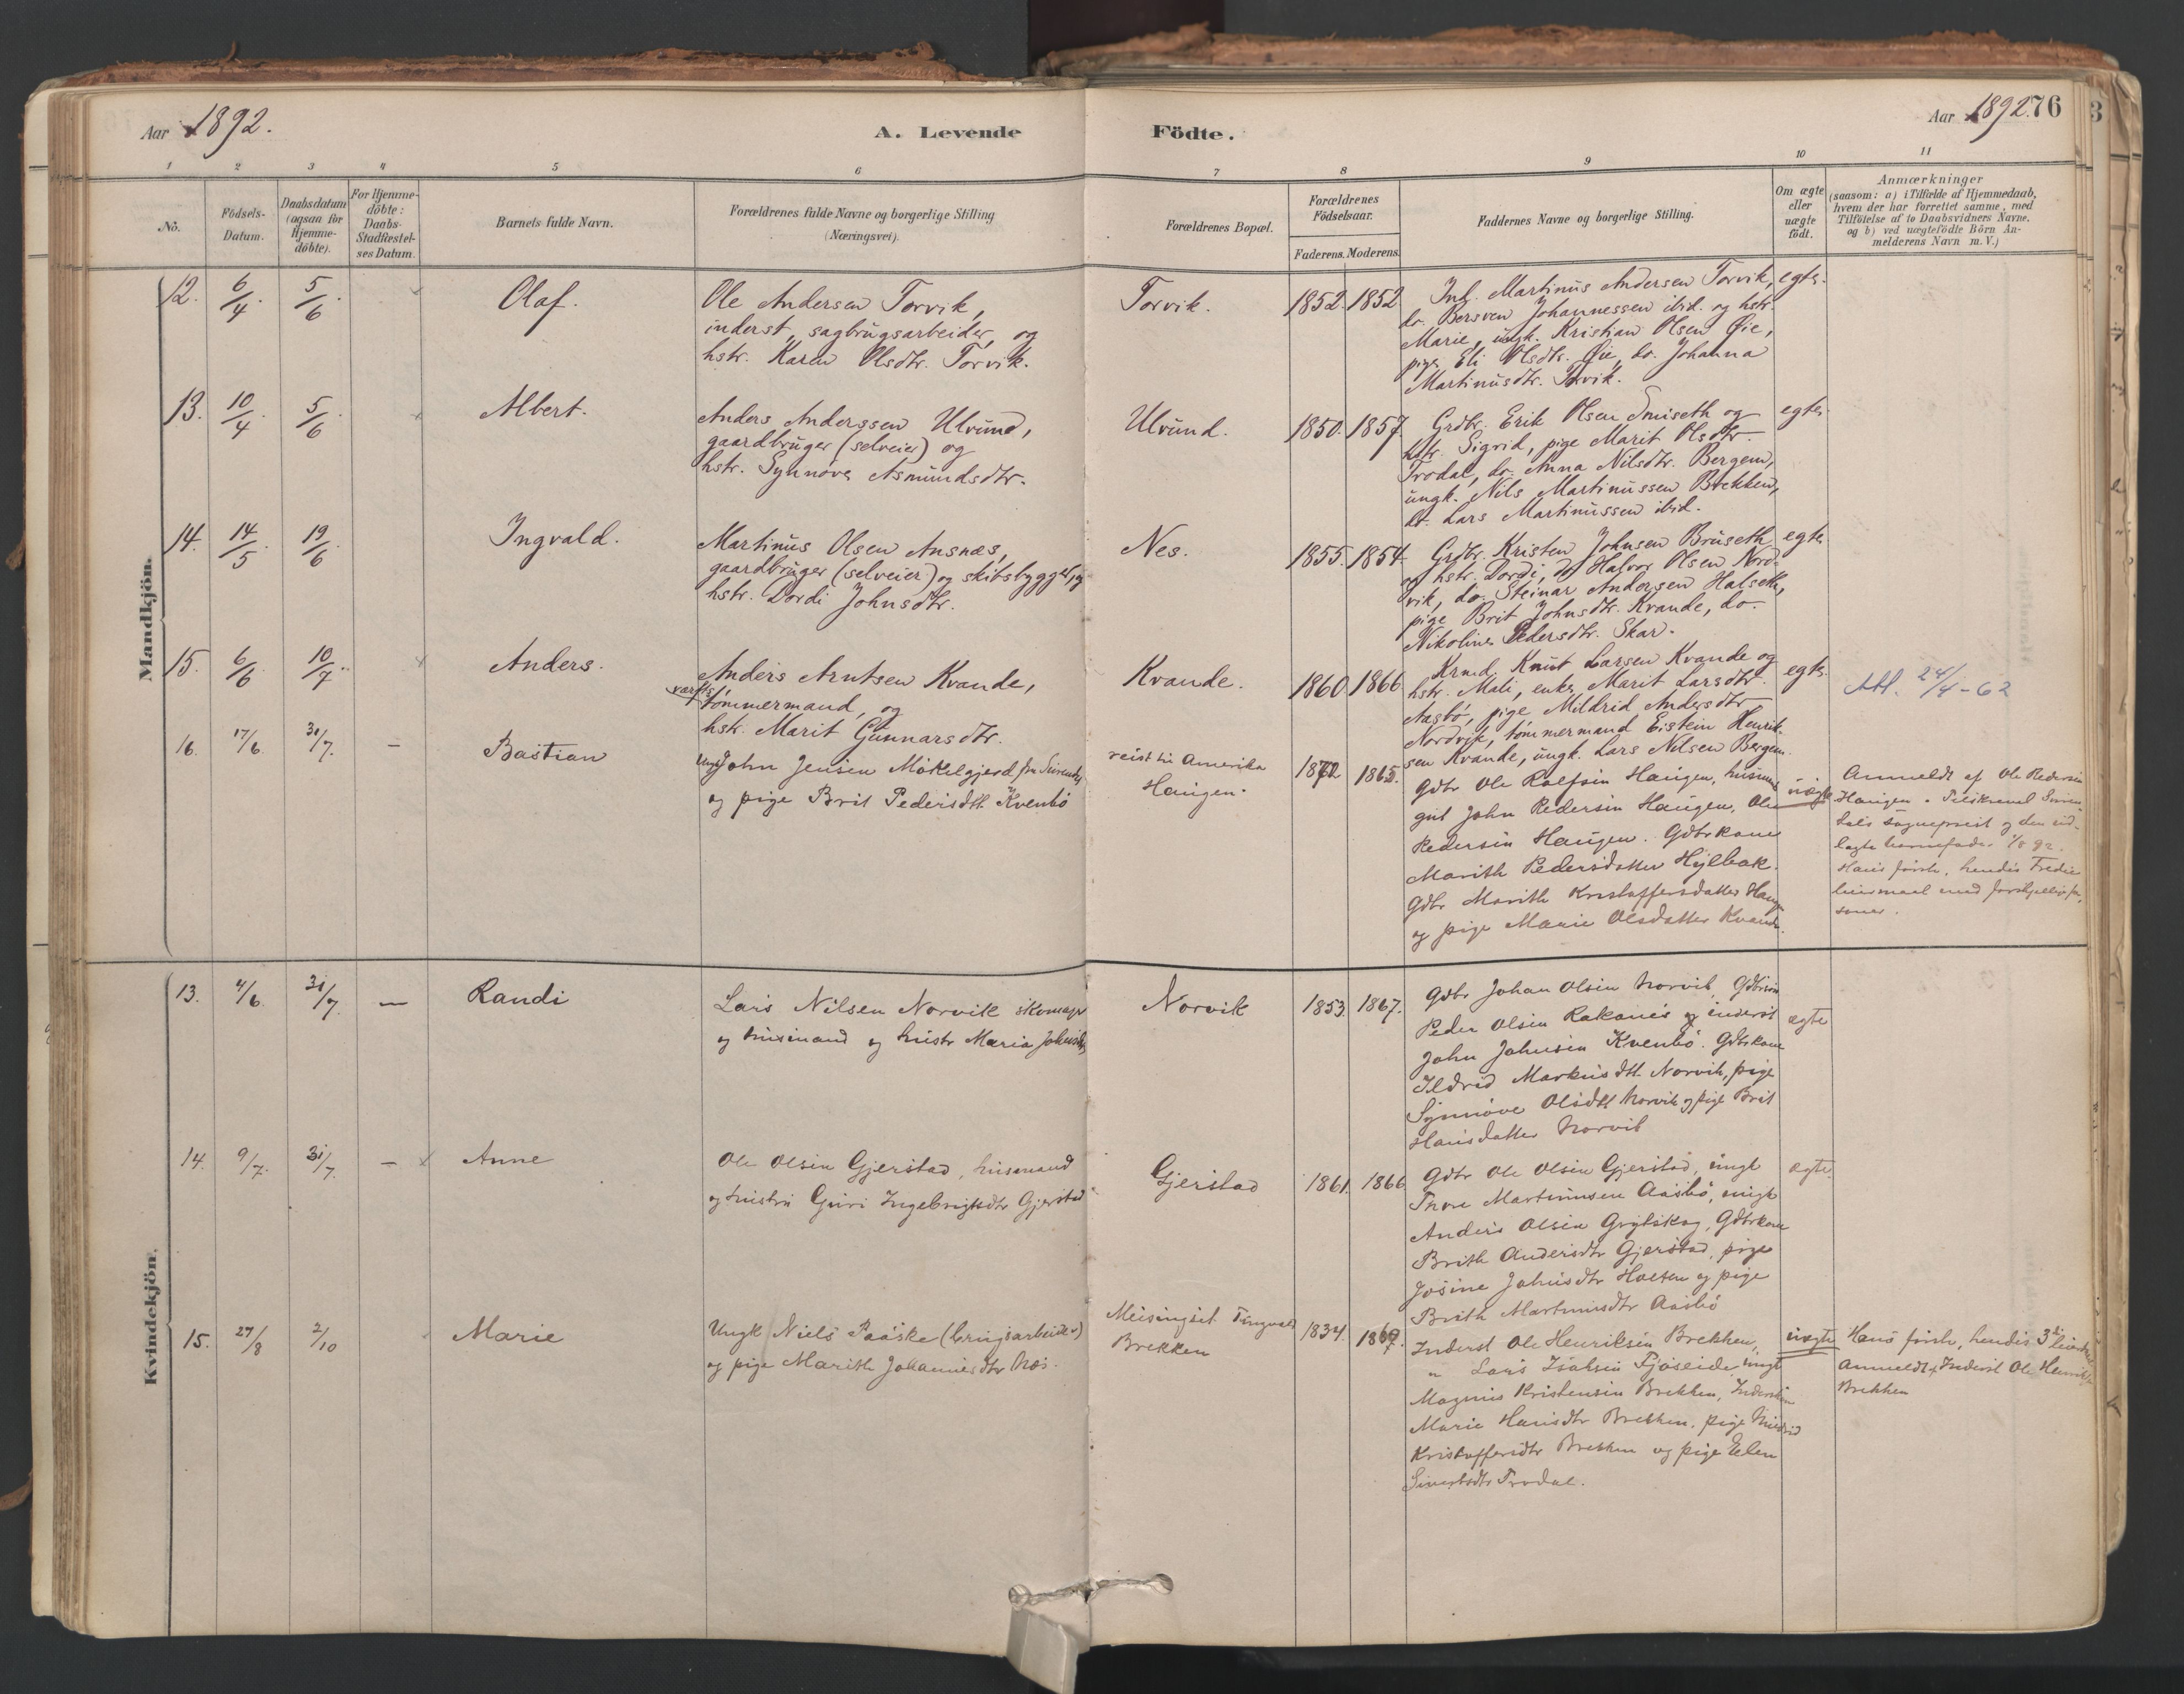 Aar 1892.
A. Levende
Födte.
Aar 1892.
76
3
1 2 3 4 5 6 7 8 9 10 11
No.
Födsels-
Datum.
Daabsdatum
(ogsaa for
Hjemme-
döbte).
For Hjemme-
döbte:
Daabs-
Stadfæstel-
ses Datum.
Barnets fulde Navn.
Forældrenes fulde Navne og borgerlige Stilling
(Næringsvei).
Forældrenes Bopæl.
Forældrenes
Födselsaar.
Faderens. Moderens.
Faddernes Navne og borgerlige Stilling.
Om ægte
eller
uægte
födt.
Anmærkninger
(saasom: a) i Tilfælde af Hjemmedaab,
hvem der har forrettet samme, med
Tilföielse af to Daabsvidners Navne.
og b) ved uægtefödte Börn An-
melderens Navn m. V.)
Mandkjön.
12. 6/4. 5/6. Olaf.
Ole Andersen Torvik,
inderst, sagbrugsarbeider, og
hstr. Karen Olsdtr. Torvik.
Torvik. 1852. 1852
Inl. Martinus Andersen Torvik,
do. Bersven Johannessen ibid. og hstr.
Marie, ungk. Kristian Olsen Øie,
pige Eli Olsdtr. Øie, do. Johanna
Martinusdtr. Torvik.
egte.
13. 10/4. 5/6. Albert.
Anders Anderssen Ulvund,
gaardbruger (selveier) og
hstr. Synnöve Asmundsdtr.
Ulvund. 1850. 1857.
Grdbr. Erik Olsen Smiseth og
hstr. Sigrid, pige Marit Olsdtr.
Trodal, do. Anna Nilsdtr. Bergem,
ungk. Nils Martinussen Brekken,
do. Lars Martinussen ibid.
egte.
14. 14/5. 19/6. Ingvald.
Martinus Olsen Ansnæs,
gaardbruger (selveier) og skibsbygger, og
hstr. Dordi Johnsdtr.
Nes. 1855. 1854.
Grdbr. Kristen Johnsen Bruseth
og hstr. Dordi, do Halvor Olsen Nord-
vik, do. Steinar Andersen Halseth,
pige Brit Johnsdtr. Kvande, do.
Nikoline Pedersdtr. Skar.
egte.
15. 6/6 10/7. Anders.
Anders Arntsen Kvande,
værfts tömmermand, og
hstr. Marit Gunnarsdtr.
Kvande. 1860. 1866.
Krmd. Knut Larsen Kvande og
hstr. Mali, enke Marit Larsdtr.
Aasbö, pige Mildrid Andersdtr
Nordvik, tömmermand Eistein Henrik-
sen Kvande, ungk. Lars Nilsen Bergem.
egte.
Att. 24/4-62
16. 17/6. 31/7. – Bastian
Ungk John Jensen Mökelgjerd fra
og pige Brit Pedersdtt. Kvenbö
reist til Amerika
Haugen.
1865.
Gdbr Ole Rolfsen Haugen,
gut John Pedersen Haugen, Ole
Pedersen Haugen. Gdbrkone
Marith Pedersdatter Hylbak.
Gdbr Marith Kristoffersdatter
og pige Marie Olsdatter Kvande.
uægte
Anmeldt af Ole Pedersen
Haugen.
sogneprest og den ud-
lagte barnefader 1/8 92.
Hans første, hendes Tredie
leiermaal med forskjellige per-
soner.
Kvindekjön.
13. 4/6. 31/7. – Randi
Lars Nilsen Norvik skomager
og husmand og hustr Maria
Norvik 1853. 1867.
Gdbr Johan Olsen Norvik,
Peder Olsen Rakanes og inderst
John Johnsen Kvenbö. Gdbrkone
Ildrid Markusdtt. Norvik, pige
Synnöve Olsdtt Norvik og pige Brit
Hansdatter Norvik
ægte
14. 9/7. 31/7. – Anne
Ole Olsen Gjerstad, husmand
og hustru Guri Ingebrigtsdtr Gjerstad
Gjerstad 1861. 1866
Gdbr Ole Olsen Gjerstad, ungk
Tore Martinusen Aasbö, ungk
Anders Olsen Grytskog, Gdbrkone
Brith Andersdtr Gjerstad, pige
Josine Johnsdtr Holten og pige
Brith Martinusdtr Aasbö
ægte.
15. 27/8 2/10 Marie
Ungk Niels Paaske (brugsarbeider)
og pige Marith Johannesdtr Næs.
Meisingset Tingvold
Brekken
1834.
Inderst Ole Henriksen Brekken,
" Lars Isaksen Fjöseide, ungk
Magnus Kristensen Brekken,
Marie Hansdtr Brekken, pige
Kristoffersdtr Brekken og pige Elen
Sivertsdtr Trodal.
uægte
Hans første, hendes 3die
Anmeldt af Inderst Ole Henriksen
Brekken